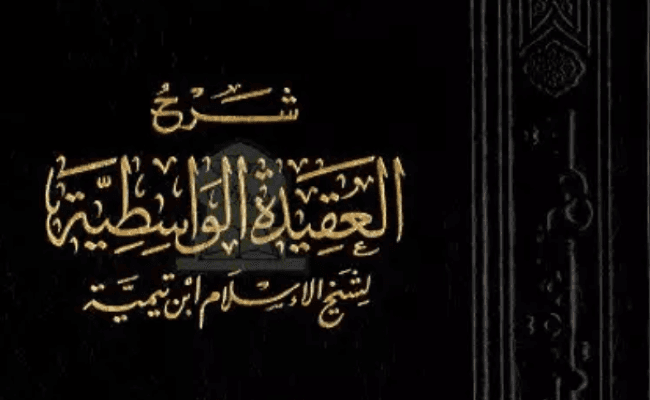 شرح
العقيدة الواسطية
لشيخ الإسلام ابن تيمية